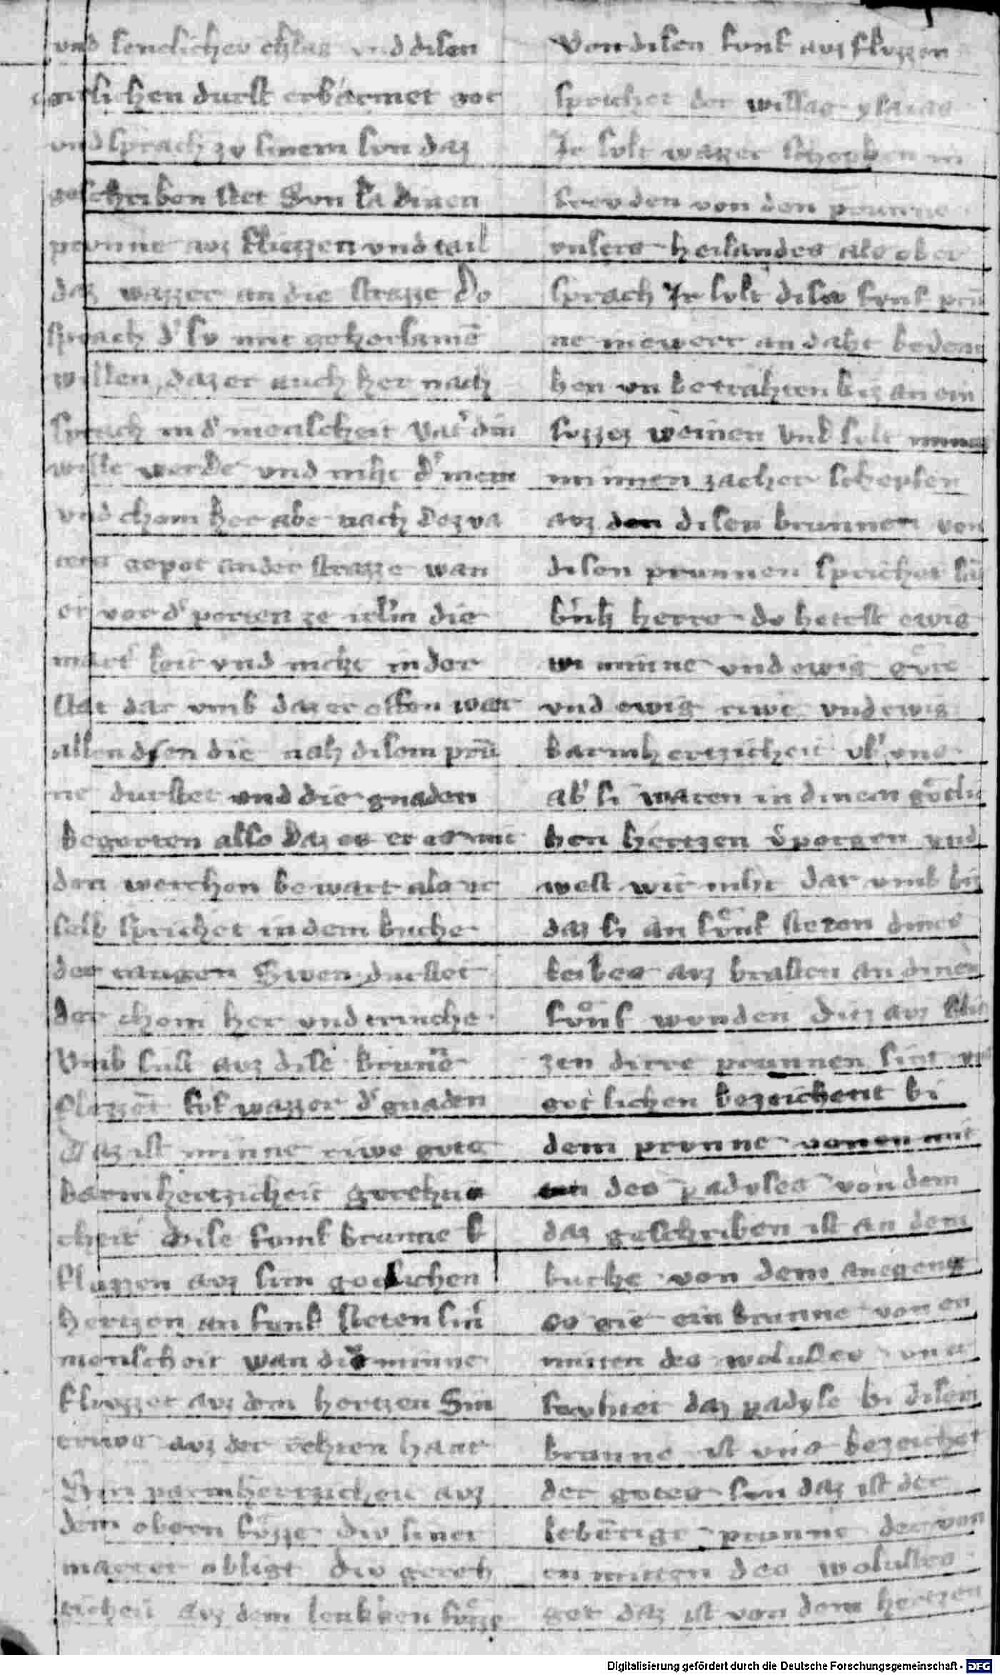 und senelicher chlag und disen
gaistlichen durst erbarmet got
und sprach zu sinem sun daz
geschriben stet Sun la dinen
prunne auz fliezzen und tail
daz wazzer an die strazze Do
sprach d' su mit gehorsamē
willen, daz er auch her nach
sprach in d' menscheit Vat' din
wille werde und niht d' mein
und chom her abe nach dez va
ters gepot an der strazze wan
er vor d' porten ze irlm die
mart' leit und niht in der
stat dar umb daz er offen war
allen dsen die nah disem prū
ne durstet und die gnaden
begerten also daz es er es mit
den werchen bewart als er
selb sprichet in dem buche
der taugen Swen durstet
der chom her und trinche
Umb sust auz dise brunē
fluzzēt fuf wazzer d' gnaden
Daz ist minne riwe gute
barmhertzicheit gereh
cheit Dise funf brunne
fluzzen auz sim gotlichen
hertzen an funf steten sin'
menscheit wan die minne
fluzzet auz dem hertzen Sin
triwe auz der rehten hant
Sin parmhertzicheit auz
dem obern fuzze div siner
marter obligt div gereh
ticheit auz dem lenkken fuzze
Von disen funf auz fluzzen
sprichet der wissag ysaias
Ir sult wazzer schepfen in
freuden von den prunne
unsers heilandes als ob er
sprach Ir sult dise funf prū
ne mit andaht beden
hen un betrahten biz an ein
suzzez weinen und sult
minnen zacher schepfen
auz den disen brunnen von
disen prunnen sprichet
herre do hetest ewig
minne und ewig gute
und ewig riwe und ewig
barmhertzicheit ub' uns
ab' si waren in dinem gotli
hen hertzen v'porgen und
west wir niht dar umb biz
daz si an funf steten dines
leibes auz brasten an dinen
funf wunden Diz auz fliez
zen dirre prunnen sint
gotlichen bezeichent bi
dem prunne
des padyses von dem
daz geschriben ist an dem
buche von dem anegeng
es gie ein brunne von en
mitten des wolustes un er
fevhtet daz padyse bi disem
brunne ist uns bezeichet
der gotes sun daz ist der
lebētige prunne der von
en mitten des wolustes
get daz ist von dem hertzen
Digitalisierung gefördert durch die Deutsche Forschungsgemeinschaft - DFG